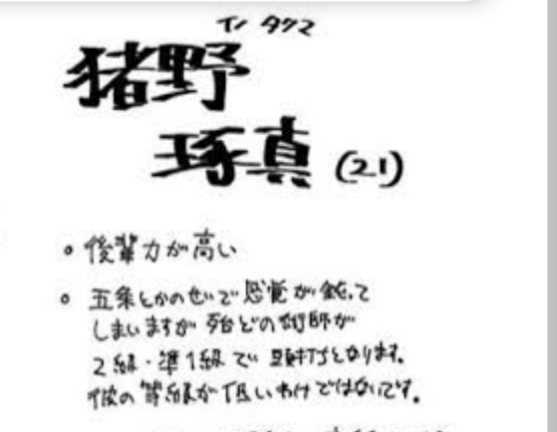 イノ タクマ
猪野
琢真 (21)
・後輩力が高い
・五条とかのせいで感覚が鈍って
しまいますが 殆どの術師が
2級・準1級で頭打ちとなります。
彼の等級が低いわけではないです。